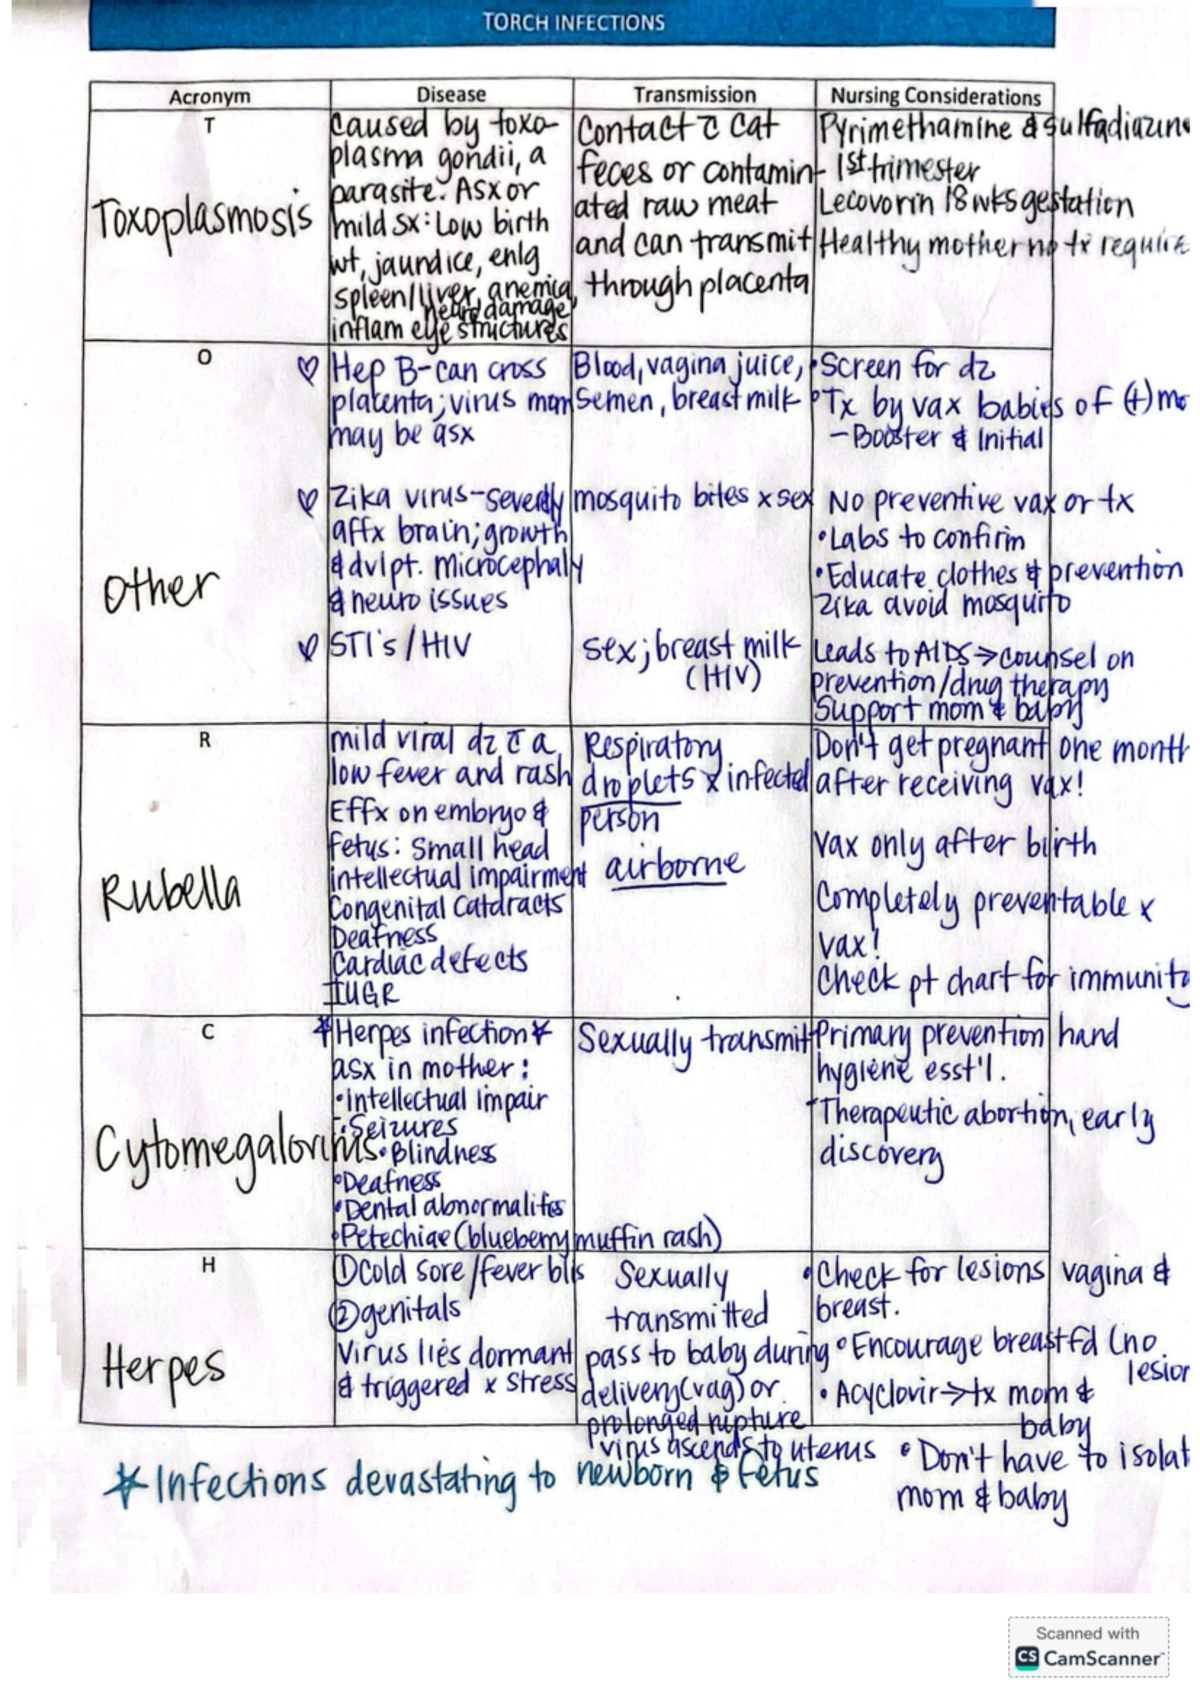 TORCH INFECTIONS
Acronym
Disease
Transmission
Nursing Considerations
T
Toxoplasmosis
caused by toxo-
plasma gondii, a
parasite. Asx or
mild sx: Low birth
wt, jaundice, enlg
spleen/liver, anemia,
heard damage
inflam eye structures
Contact c̄ cat
feces or contamin-
ated raw meat
and can transmit
through placenta
Pyrimethamine & sulfadiazine
1st trimester
Lecovorin 18 wks gestation
Healthy mother no tx require
O
Other
♡ Hep B-can cross
placenta; virus mom
may be asx
Blood, vagina juice,
semen, breast milk
•Screen for dz
•Tx by vax babies of (+) mo
- Booster & Initial
♡ Zika virus-severely
affx brain; growth
& dvlpt. microcephaly
& neuro issues
mosquito bites x sex
No preventive vax or tx
•Labs to confirm
•Educate clothes & prevention
Zika avoid mosquito
♡ STI's/HIV
sex; breast milk
(HIV)
Leads to AIDS→counsel on
prevention/drug therapy
Support mom & baby
R
Rubella
mild viral dz c̄ a
low fever and rash
Effx on embryo &
fetus: Small head
intellectual impairment
Congenital Cataracts
Deafness
Cardiac defects
IUGR
Respiratory
droplets x infected
person
airborne
Don't get pregnant one month
after receiving vax!
Vax only after birth
Completely preventable x
vax!
Check pt chart for immunity
C
Cytomegalovirus
*Herpes infection*
asx in mother:
•Intellectual impair
•Seizures
•Blindness
•Deafness
•Dental abnormalites
•Petechiae (blueberry muffin rash)
Sexually transmit
Primary prevention hand
hygiene esst'l.
Therapeutic abortion, early
discovery
H
Herpes
①Cold sore/fever blis
②genitals
Virus lies dormant
& triggered x stress
Sexually
transmitted
pass to baby during
delivery(vag) or
prolonged rupture
virus ascends to uterus
•Check for lesions vagina &
breast.
•Encourage breastfd (no
lesion
•Acyclovir→tx mom &
baby
•Don't have to isolat
mom & baby
*Infections devastating to newborn & fetus
Scanned with
CS CamScanner